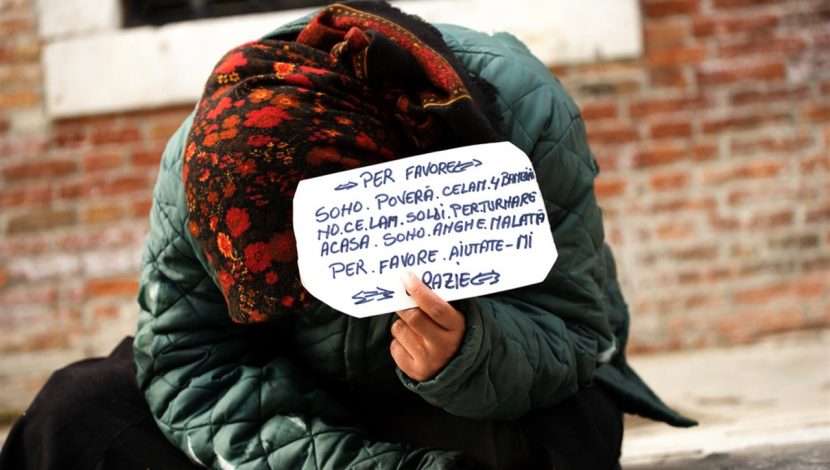 PER FAVORE
SONO. POVERA. CELAM. 4 BAMBINI
NO. CE. LAM. SOLDI. PER. TURNARE
ACASA. SONO. ANGHE. MALATTA
PER. FAVORE. AIUTATE-MI
GRAZIE